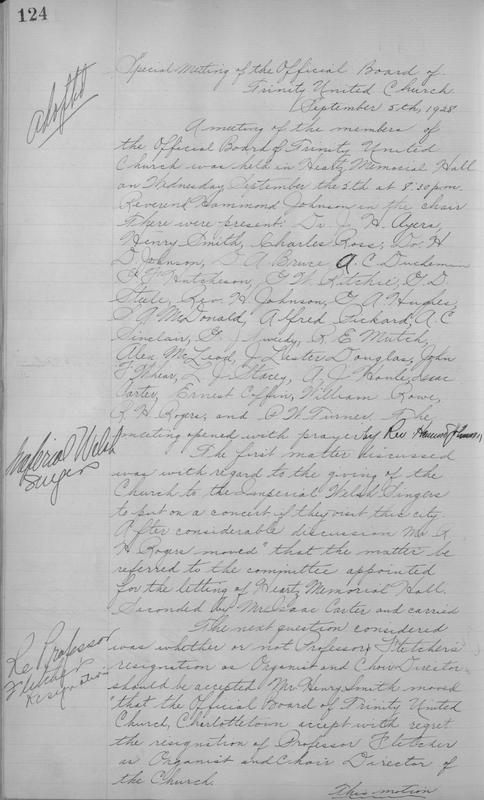 124
adopted
Special Meeting of the Official Board of
Trinity United Church.
September 5th, 1928
A meeting of the members of
the Official Board of Trinity United
Church was held in Heartz Memorial Hall
on Wednesday September the 5th at 8.30 p.m.
Reverend Hammond Johnson in the chair
There were present: Dr. J. H. Ayers,
Henry Smith, Charles Ross, Dr. H
D. Johnson, D. A. Bruce, A. C. Duchemin
Hutcheson, G. W. Ritchie, G. D.
Steele, Rev. H. Johnson, G. A. Hughes,
McDonald, Alfred Pickard, A. C
Sinclair, G. J. Tweedy, R. E. Mutch,
Alex McLeod, J. Lester Douglas, John
F. Whear, L. J. Stacey, Isaac
Carter, Ernest Coffin, William Rowe,
K. H. Rogers, and P. W. Turner. The
meeting opened with prayer by Rev Hammond Johnson
Imperial Welsh
Singers
The first matter discussed
was with regard to the giving of the
Church to the Imperial Welsh Singers
to put on a concert if they visit this city.
After considerable discussion Mr. K
H. Rogers moved "that the matter be
referred to the committee appointed
for the letting of Heartz Memorial Hall.
Seconded by Mr. Isaac Carter and carried
Re Professor
Fletcher
resignation
The next question considered
was whether or not Professor Fletcher's
resignation as Organist and Choir Director
should be accepted Mr. Henry Smith moved
"that the Official Board of Trinity United
Church, Charlottetown accept with regret
the resignation of Professor Fletcher
as Organist and Choir Director of
the Church.
This motion